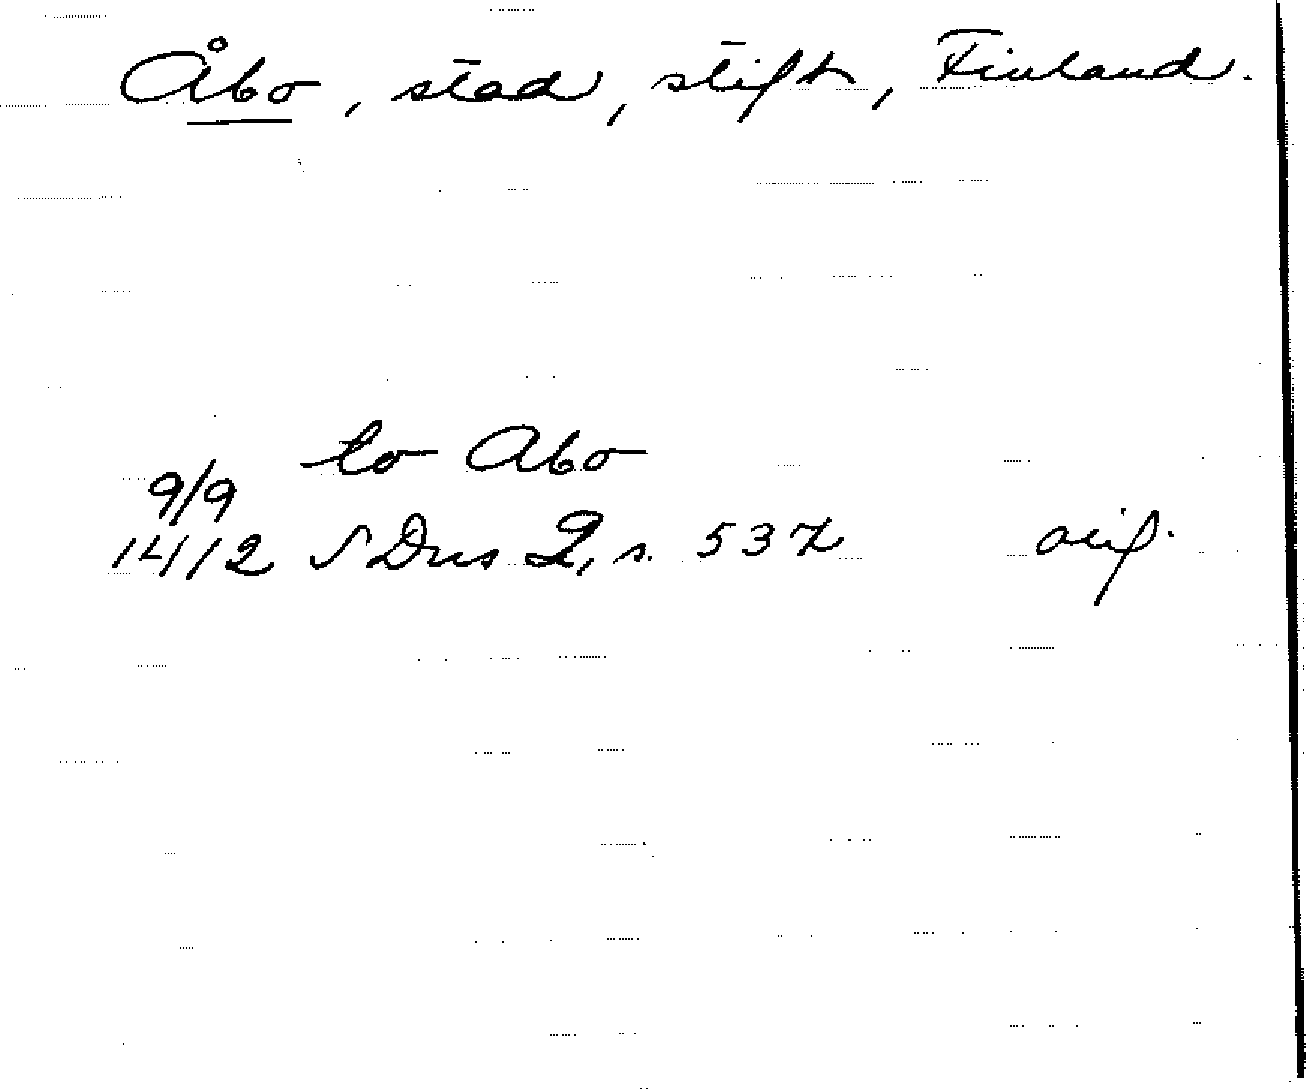 Åbo, stad, stift, Finland.
to Abo
9/9
1412 SDns 2, s. 537 orig.